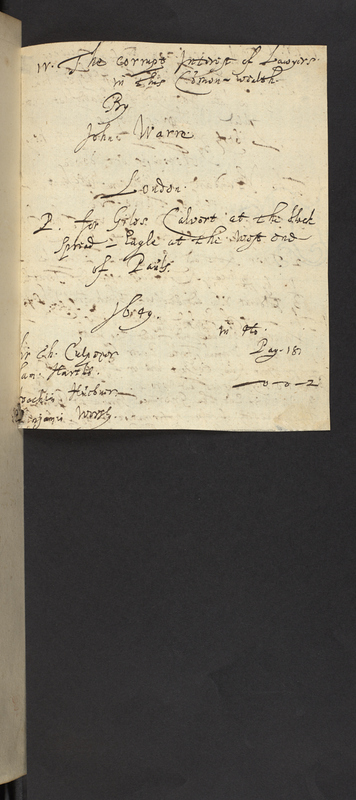 W. The corrupt Interest of Lawyers
in this Com̄on-wealth.
By
John Warre
London.
P. for Giles Calvert at the black
spread-Eagle at the west end
of Pauls.
1649.
in 4to.
Pag. 18.
Ch. Culpeper
Hartl.
—0-0-2
Benjamin Worsly.